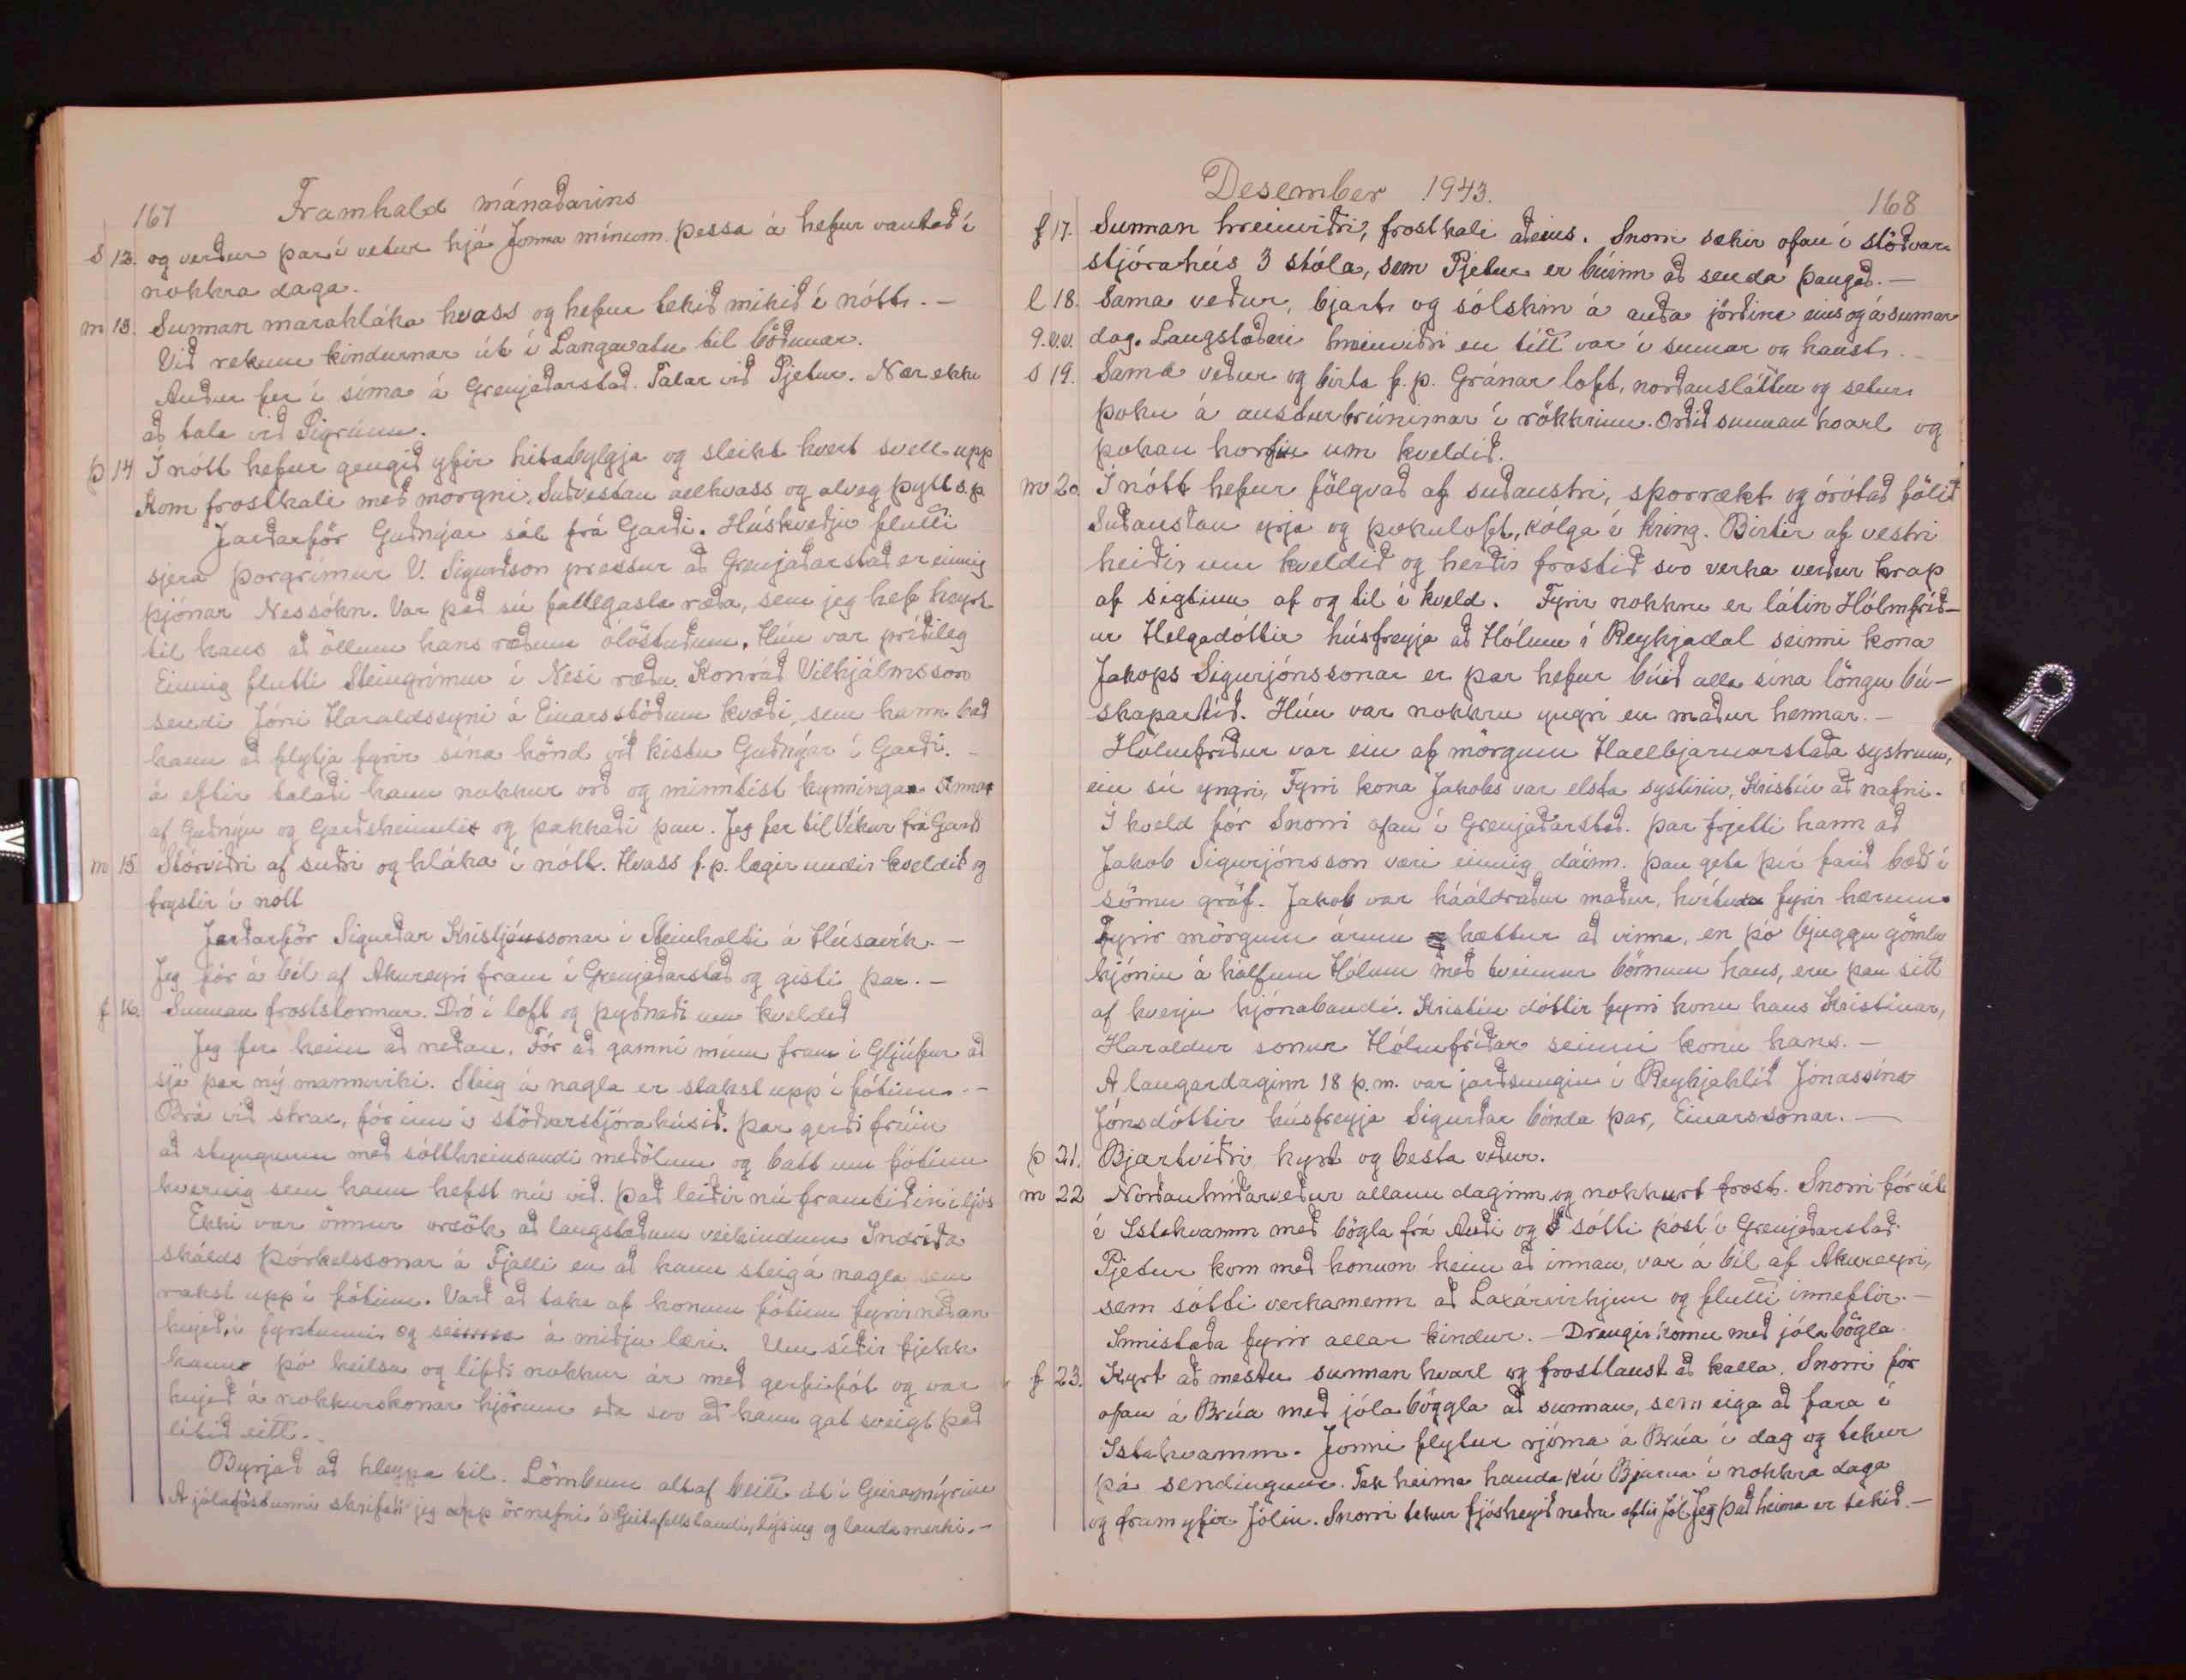 167 Framhald mánaðarins
s 12. og verður þar í vetur hjá Jonna mínum þessa á hefur vantað í
nokkra daga.
m 13. Sunnan marahláka hvass og hefur tekið mikið í nótt. –
Við rekum kindurnar út í Langavatn til böðunar.
Auður fer í síma á Grenjaðarstað. Talar við Pjetur. Nær ekki
að tala við Sigrúnu.
þ 14 Í nótt hefur gengið yfir hitabylgja og sleikt hvert svell upp
Kom frostkali með morgni. Suðvestan allhvass og alveg þýtt s.p.
Jarðarför Guðnýar sál frá Garði. Húskveðju flutti
sjera Þorgrímur V. Sigurðson prestur að Grenjaðarstað er einnig
þjónar Nessókn. Var það sú fallegasta ræða, sem jeg hef heyrt
til hans að öllum hans ræðum ólöstuðum. Hún var prýðileg
Einnig flutti Steingrímur í Nesi ræðu. Konráð Vilhjálmsson
sendi Jóni Haraldssyni á Einarsstöðum kvæði, sem hann bað
hann að flytja fyrir sína hönd við kistu Guðnýar í Garði. –
á eftir talaði hann nokkur orð og minntist kynningar
af Guðnýu og Garðsheimili og þakkaði þau. Jeg fer til Víkur frá Garð
m 15. Stórviðri af suðri og hláka í nótt. Hvass f.p. lægir undir kveldið og
frystir í nótt
Jarðarför Sigurðar Kristjánssonar í Steinholti á Húsavík. –
Jeg fór á bíl af Akureyri fram í Grenjaðarstað og gisti þar. –
f 16. Sunnan froststormur. Dró í loft og þyðnaði um kveldið
Jeg fer heim að neðan. Fór að gamni mínu fram í Gljúfur að
sjá þar ný mannvirki. Steig á nagla er stakst upp í fótinn. –
Brá við strax, fór inn í stöðvarstjórahúsið. Þar gerði frúin
að stungunni með sótthreinsandi meðölum og batt um fótinn
hvernig sem hann hefst nú við. Það leiðir nú framtíðin í ljós
Ekki var önnur orsök að langstæðum veikindum Indriða
skálds Þórkelssonar á Fjalli en að hann steig á nagla sem
rakst upp í fótinn. Varð að taka af honum fótinn fyrir neðan
hnjeð, í fyrstunni og á miðju læri. Um síðir fjekk
hann þó heilsu og lifði nokkur ár með gerfifót og var
hnjeð á nokkurskonar hjörum eða svo að hann gat sveigt það
lítið eitt.
Byrjað að hleypa til. Lömbum altaf beitt út í Geiramýrina
Á jólaföstunni skrifaði jeg upp örnefni í Geitafellslandi, lýsing og landamerki. –
Desember 1943. 168
f 17. Sunnan hreinviðri, frostkali aðeins. Snorri sækir ofan í stöðvar
stjórahús 3 stóla, sem Pjetur er búinn að senda þangað. –
l 18. Sama veður, bjart og sólskin á auða jörðina eins og á sumar
9.v.v. dag. Langstæðari hreinviðri en títt var í sumar og haust. –
s 19. Sama veður og birta f.p. Gránar loft, norðansláttur og setur
þoku á austurbrúnirnar í rökkrinu. Orðið sunnan hvarl og
þokan horfin um kveldið.
m 20. Í nótt hefur fölgvað af suðaustri, sporrækt og órótað fölið
Suðaustan yrja og þokuloft, kólga í kring. Birtir af vestri
heiðir um kveldið og herðir frostið svo verka verður krap
af sigtinu af og til í kveld. Fyrir nokkru er látin Hólmfríð-
ur Helgadóttir húsfreyja að Hólum í Reykjadal seinni kona
Jakops Sigurjónssonar er þar hefur búið alla sína löngu bú-
skapartíð. Hún var nokkru yngri en maður hennar. –
Hólmfríður var ein af mörgum Hallbjarnarstaða systrum,
ein sú yngri. Fyrri kona Jakobs var elsta systirin, Kristín að nafni.
Í kveld fór Snorri ofan í Grenjaðarstað. Þar frjetti hann að
Jakob Sigurjónsson væri einnig dáinn. Þau geta því farið bæði í
sömu gröf. Jakob var háaldraður maður, hvítur fyrir hærum.
Fyrir mörgum árum hættur að vinna, en þó bjuggu gömlu
hjónin á hálfum Hólum með tveimur börnum hans, eru þau sitt
af hverju hjónabandi. Kristín dóttir fyrri konu hans Kristínar,
Haraldur sonur Hólmfríðar seinni konu hans. –
Á laugardaginn 18 þ.m. var jarðsungin í Reykjahlíð Jónassína
Jónsdóttir húsfreyja Sigurðar bónda þar, Einarssonar. –
þ 21. Bjartviðri kyrt og besta veður.
m 22 Norðanhríðarveður allann daginn og nokkurt frost. Snorri fór út
í Ystahvamm með bögla frá Auði og sótti póst í Grenjaðarstað
Pjetur kom með honum heim að innan, var á bíl af Akureyri,
sem sótti verkamenn að Laxárvirkjun og flutti inneftir. –
Innistaða fyrir allar kindur. – Drengir komu með jólabögla
f 23. Kyrt að mestu sunnan hvarl og frostlaust að kalla. Snorri fór
ofan á Brúa með jólaböggla að sunnan, sem eiga að fara í
Ystahvamm. Jonni flytur rjóma á Brúa í dag og tekur
þá sendingum. Tek heima handa kú Bjarna í nokkra daga
og fram yfir Jólin. Snorri tekur fjósheyið neðra eftir jól Jeg það heima er tekið. –